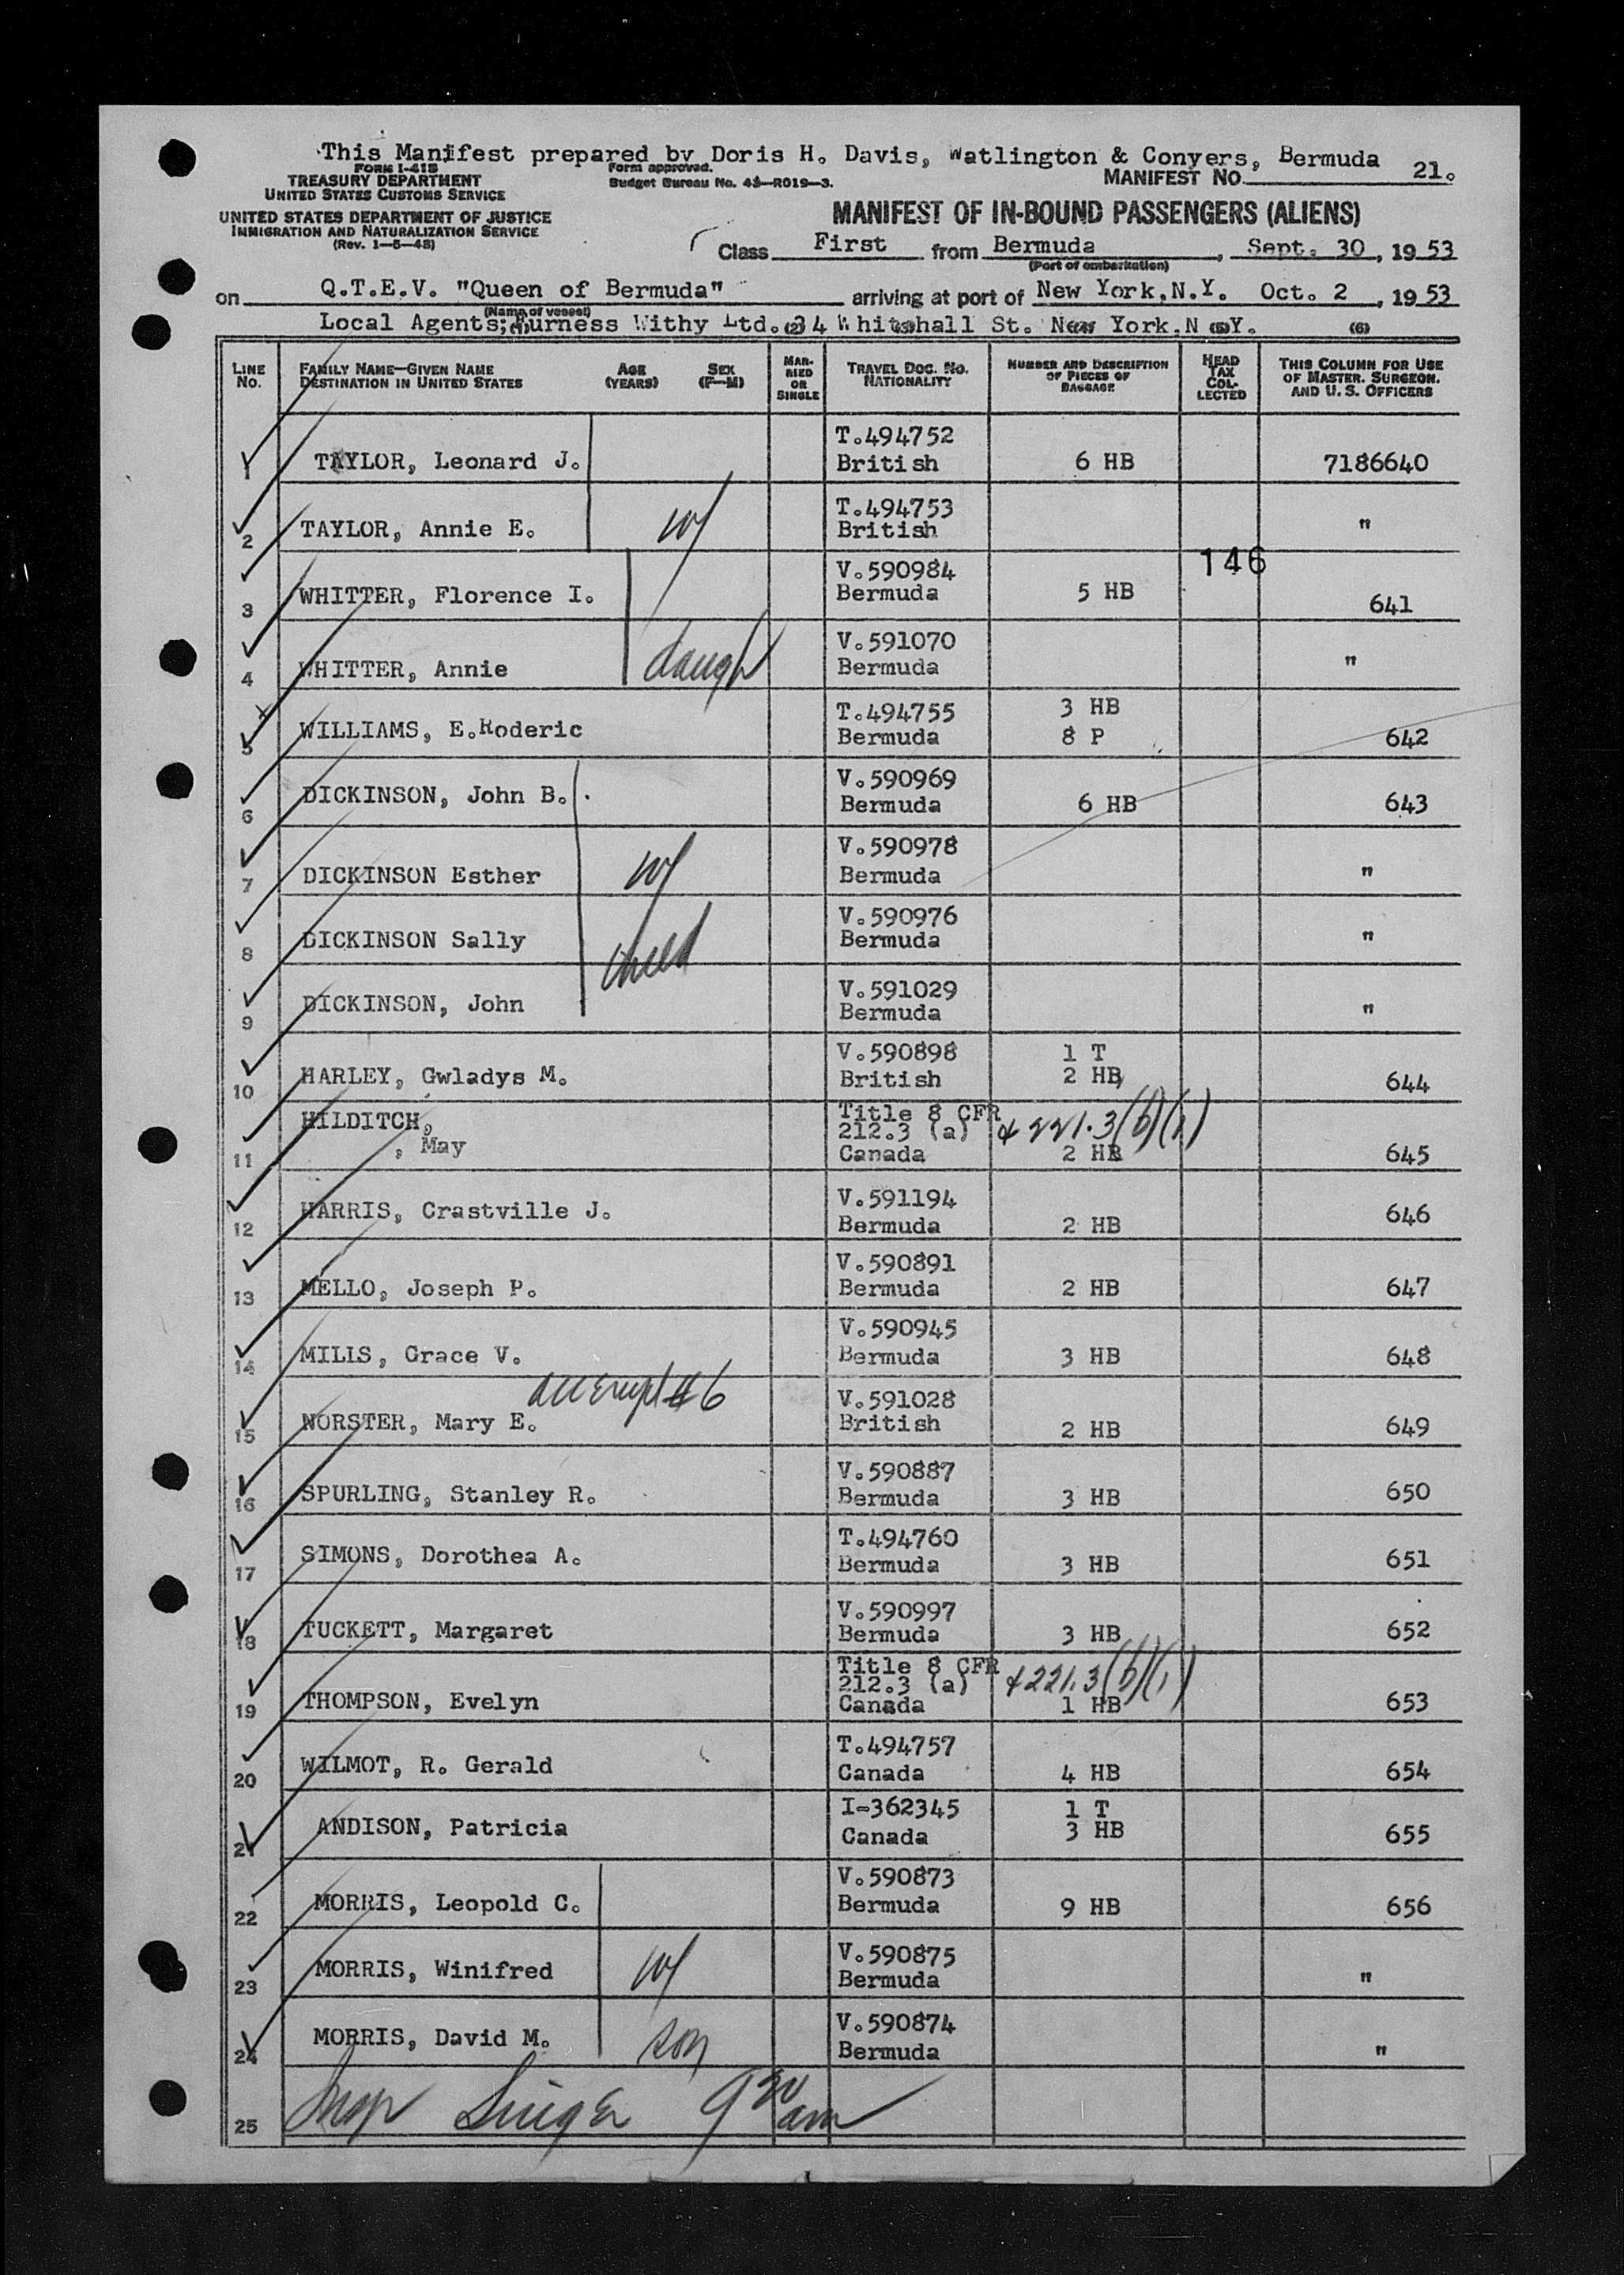 This Manifest prepared by Doris H. Davis, Watlington & Conyers, Bermuda
FORM I-418
TREASURY DEPARTMENT
UNITED STATES CUSTOMS SERVICE
Form approved.
Budget Bureau No. 43—R019—3.
MANIFEST NO. 21.
UNITED STATES DEPARTMENT OF JUSTICE
IMMIGRATION AND NATURALIZATION SERVICE
(Rev. 1—5—48)
MANIFEST OF IN-BOUND PASSENGERS (ALIENS)
Class First from Bermuda, Sept. 30, 1953
(Port of embarkation)
on Q.T.E.V. "Queen of Bermuda" arriving at port of New York,N.Y. Oct. 2, 1953
(Name of vessel)
Local Agents; Furness Withy Ltd. 34 Whitehall St. New York.N.Y.
(1) (2) (3) (4) (5) (6)
LINE No. FAMILY NAME—GIVEN NAME DESTINATION IN UNITED STATES AGE (YEARS) SEX (F—M) MARRIED OR SINGLE TRAVEL DOC. NO. NATIONALITY NUMBER AND DESCRIPTION OF PIECES OF BAGGAGE HEAD TAX COLLECTED THIS COLUMN FOR USE OF MASTER, SURGEON, AND U. S. OFFICERS
1 TAYLOR, Leonard J. T.494752 British 6 HB 7186640
2 TAYLOR, Annie E. w T.494753 British "
146
3 WHITTER, Florence I. V.590984 Bermuda 5 HB 641
4 WHITTER, Annie daugh V.591070 Bermuda "
5 WILLIAMS, E.Roderic T.494755 Bermuda 3 HB 8 P 642
6 DICKINSON, John B. V.590969 Bermuda 6 HB 643
7 DICKINSON Esther w V.590978 Bermuda "
8 DICKINSON Sally child V.590976 Bermuda "
9 DICKINSON, John V.591029 Bermuda "
10 HARLEY, Gwladys M. V.590898 British 1 T 2 HB 644
11 HILDITCH, , May Title 8 CFR 212.3 (a) & 221.3(b)(1) Canada 2 HB 645
12 HARRIS, Crastville J. V.591194 Bermuda 2 HB 646
13 MELLO, Joseph P. V.590891 Bermuda 2 HB 647
14 MILLS, Grace V. V.590945 Bermuda 3 HB 648
15 NORSTER, Mary E. #6 V.591028 British 2 HB 649
16 SPURLING, Stanley R. V.590887 Bermuda 3 HB 650
17 SIMONS, Dorothea A. T.494760 Bermuda 3 HB 651
18 TUCKETT, Margaret V.590997 Bermuda 3 HB 652
19 THOMPSON, Evelyn Title 8 CFR 212.3 (a) & 221.3(b)(1) Canada 1 HB 653
20 WILMOT, R. Gerald T.494757 Canada 4 HB 654
21 ANDISON, Patricia I-362345 Canada 1 T 3 HB 655
22 MORRIS, Leopold C. V.590873 Bermuda 9 HB 656
23 MORRIS, Winifred w V.590875 Bermuda "
24 MORRIS, David M. son V.590874 Bermuda "
25 Insp Singer 9 30 am